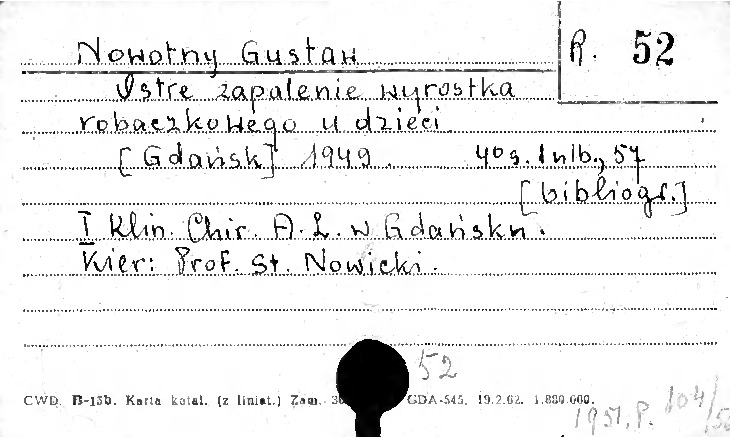 Nowotny Gustaw
R. 52
Ostre zapalenie wyrostka
robaczkowego u dzieci.
[Gdańsk] 1949. 40 s. 1 nlb., 57
[bibliogr.]
I Klin. Chir. A. L. w Gdańsku.
Kier: Prof. St. Nowicki.
52
CWD. B-15b. Karta katal. (z liniat.) Zam. GDA-545. 19.2.62. 1.880.000.
1951. P. 104/